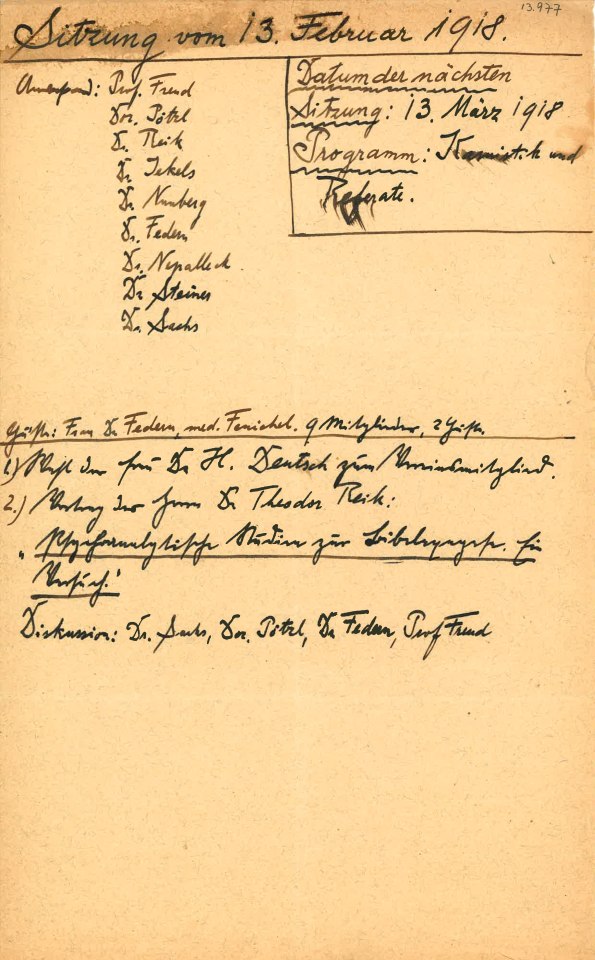 13.977
Sitzung vom 13. Februar 1918.
Anwesend: Prof. Freud
Doz. Pötzl
Dr. Reik
Dr. Jekels
Dr. Nunberg
Dr. Federn
Dr. Nepalleck
Dr. Steiner
Dr. Sachs
Datum der nächsten
Sitzung: 13. März 1918
Programm: und
Referate.
Gäste: Frau Dr. Federn, med. Fenichel. 9 Mitglieder, 2 Gäste.
1.) Wahl der Frau Dr. H. Deutsch zum Vereinsmitglied.
2.) Vortrag des Herrn Dr. Theodor Reik:
„Psychoanalytische Studien zur Bibelexegese. Ein
Versuch."
Diskussion: Dr. Sachs, Doz. Pötzl, Dr. Federn, Prof Freud